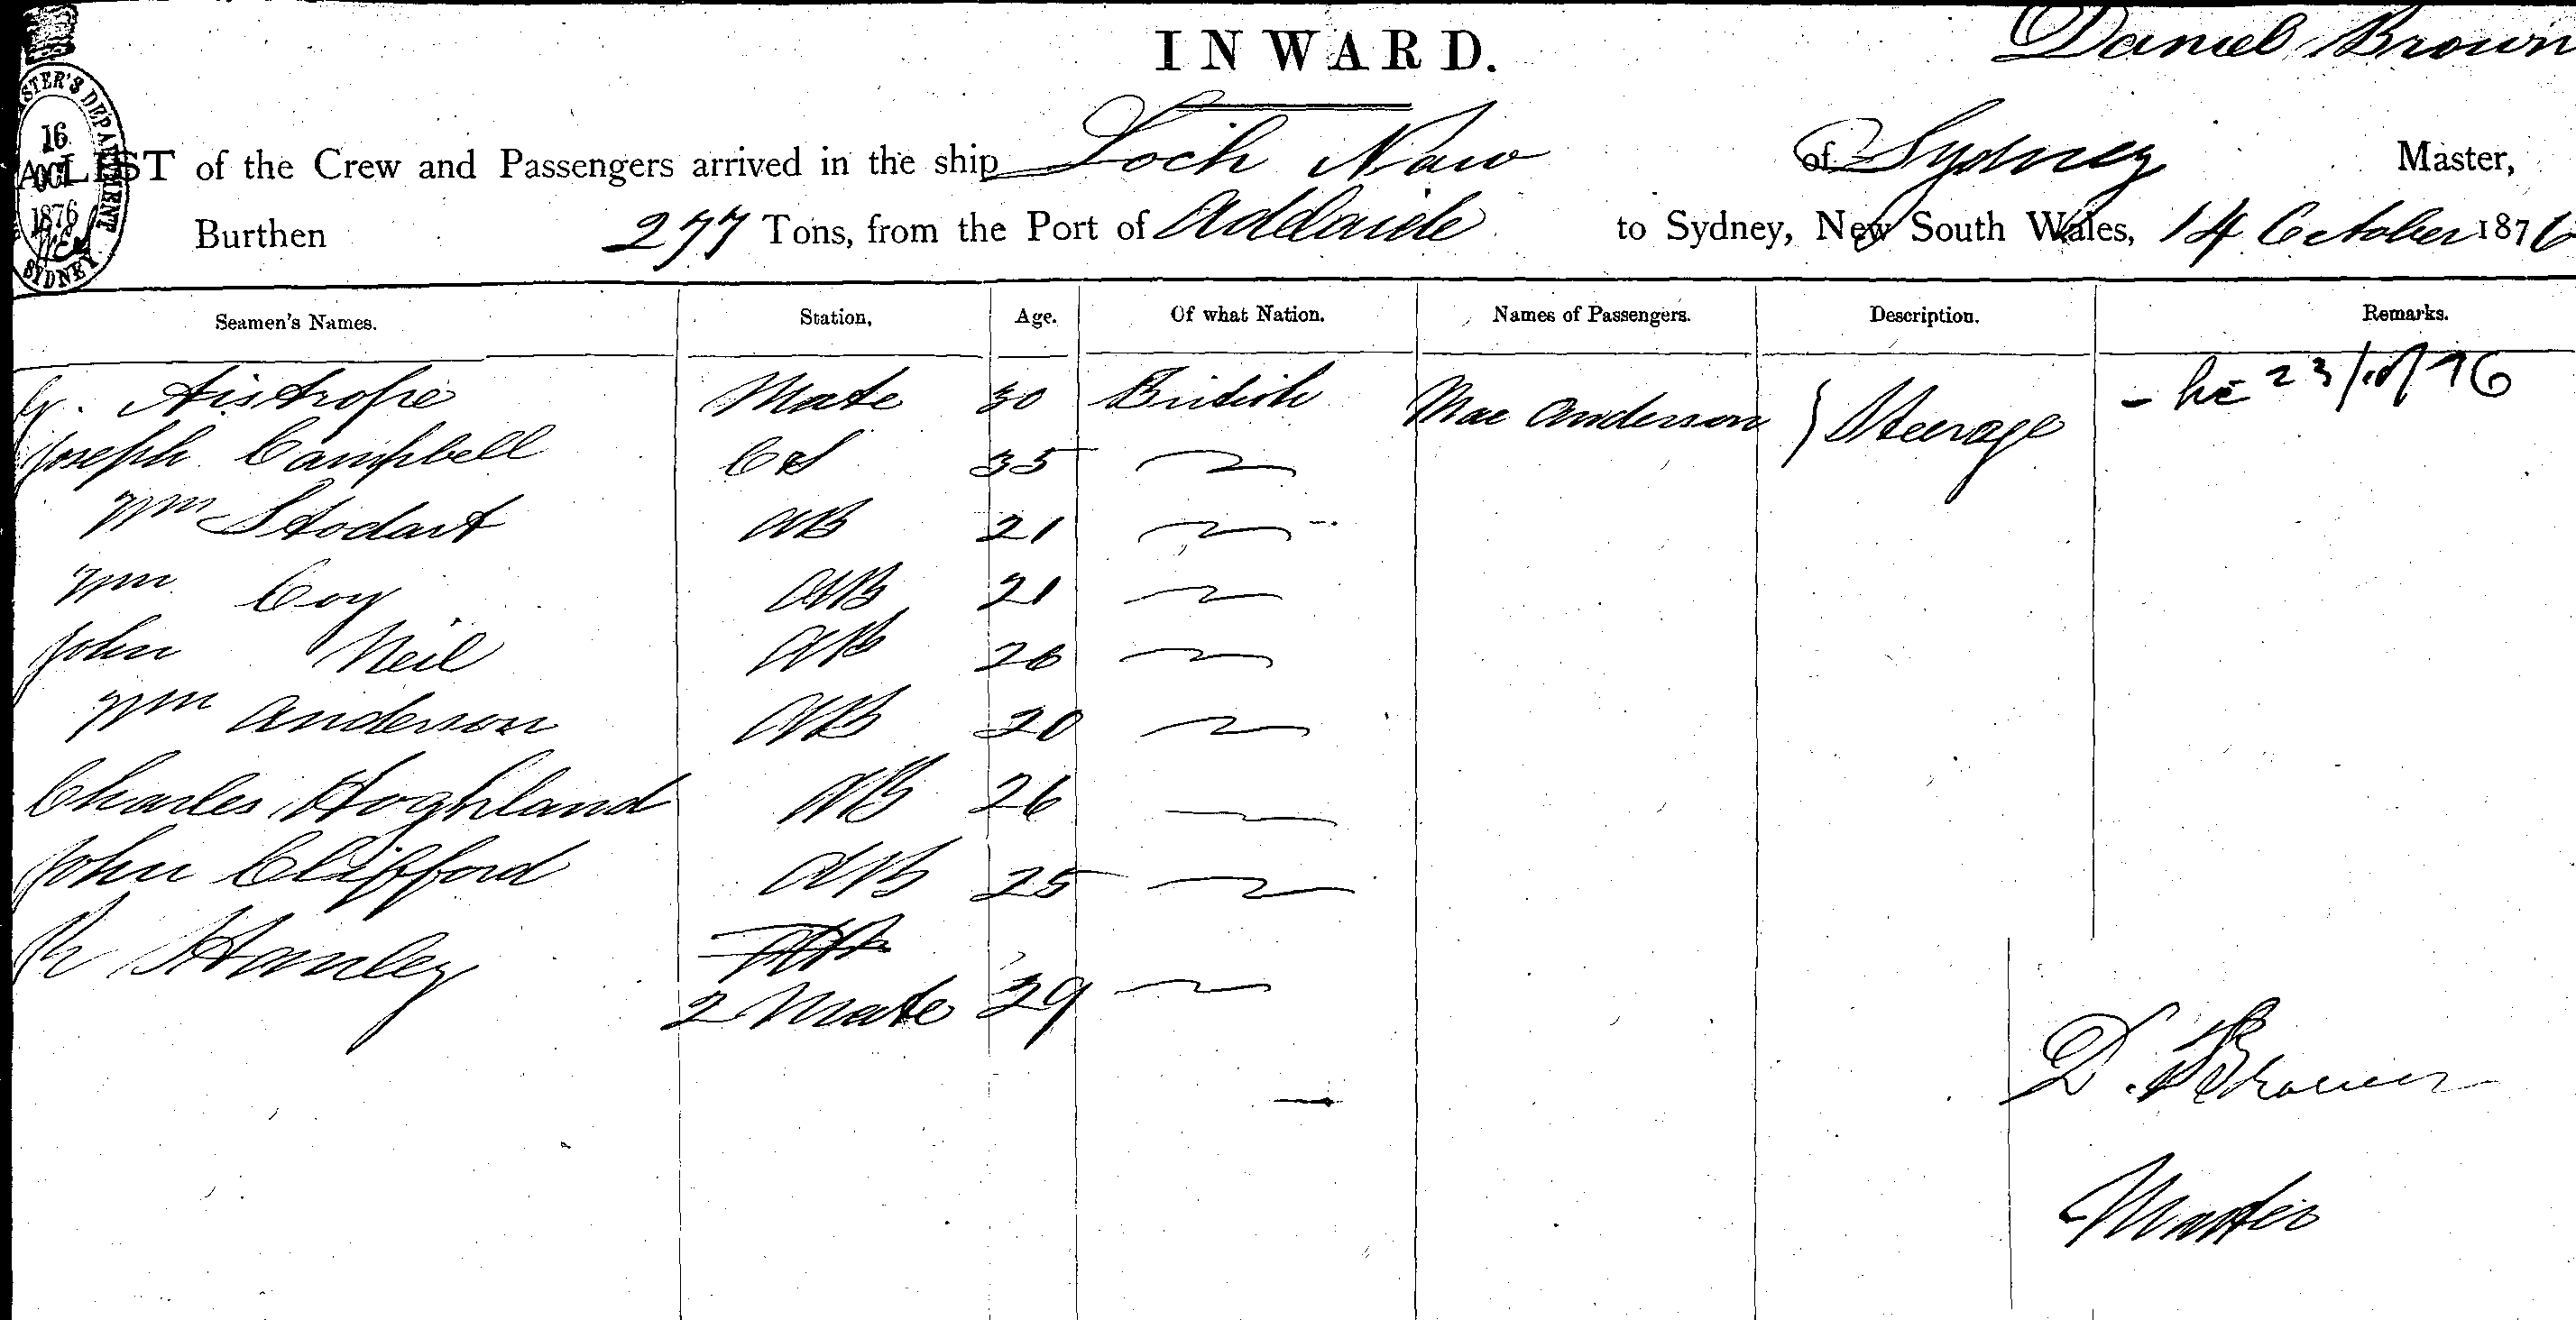 INWARD.
Daniel Brown
A LIST of the Crew and Passengers arrived in the ship Loch Naw of Sydney Master,
Burthen 277 Tons, from the Port of Addaide to Sydney, New South Wales, 14 October 1876
16 OCT 1876
SYDNEY.
Seamen's Names. Station, Age. Of what Nation. Names of Passengers. Description. Remarks.
G. Aistrope Mate 30 British Mac Anderson } Steerage 23/10/76
Joseph Campbell C&S 35
Wm Stodart AB 21
Wm Coy AB 21
John Neil AB 26
Wm Anderson AB 20
Charles Hoghland AB 26
John Clifford AB 25
Hanley
2 Mate 29
D. Brown
Master